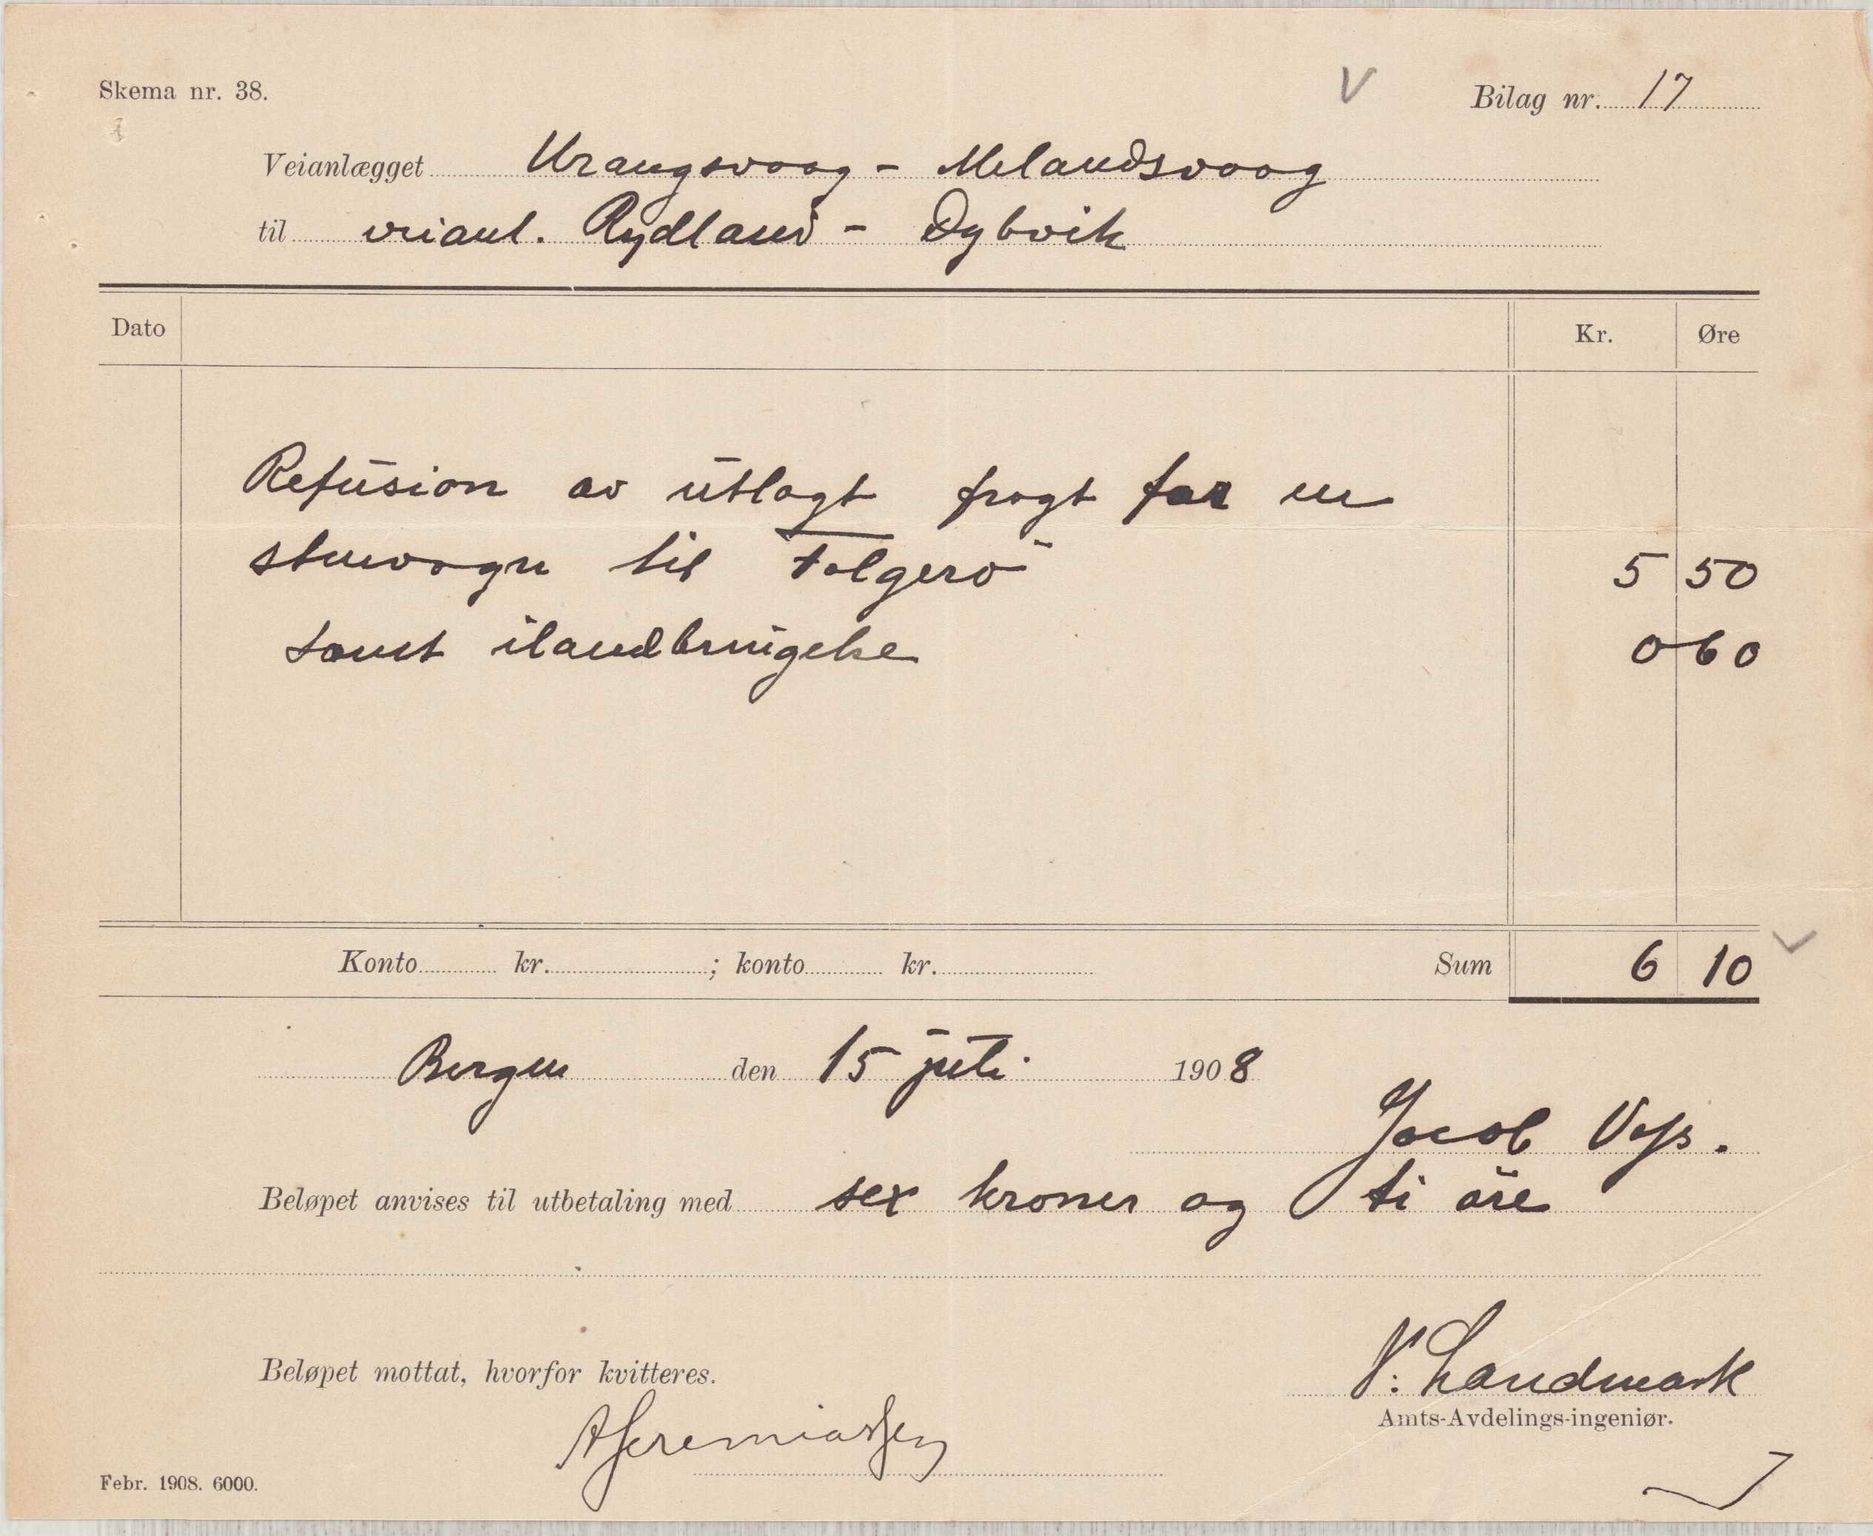 Skema nr. 38.
V
Bilag nr. 17
Veianlægget Urangsvaag - Melandsvaag
til veianl. Rydland - Dybvik
Dato Kr. Øre
Refusion av utlagt fragt for en
stenvogn til Folgerö 5 50
samt ilandbringelse 0 60
Konto kr. ; konto kr. Sum 6 10
Bergen den 15 juli 1908
Jacob Voss.
Beløpet anvises til utbetaling med sex kroner og ti öre
N. Landmark
Beløpet mottat, hvorfor kvitteres.
Amts-Avdelings-ingeniør.
A Jeremiassen
Febr. 1908. 6000.